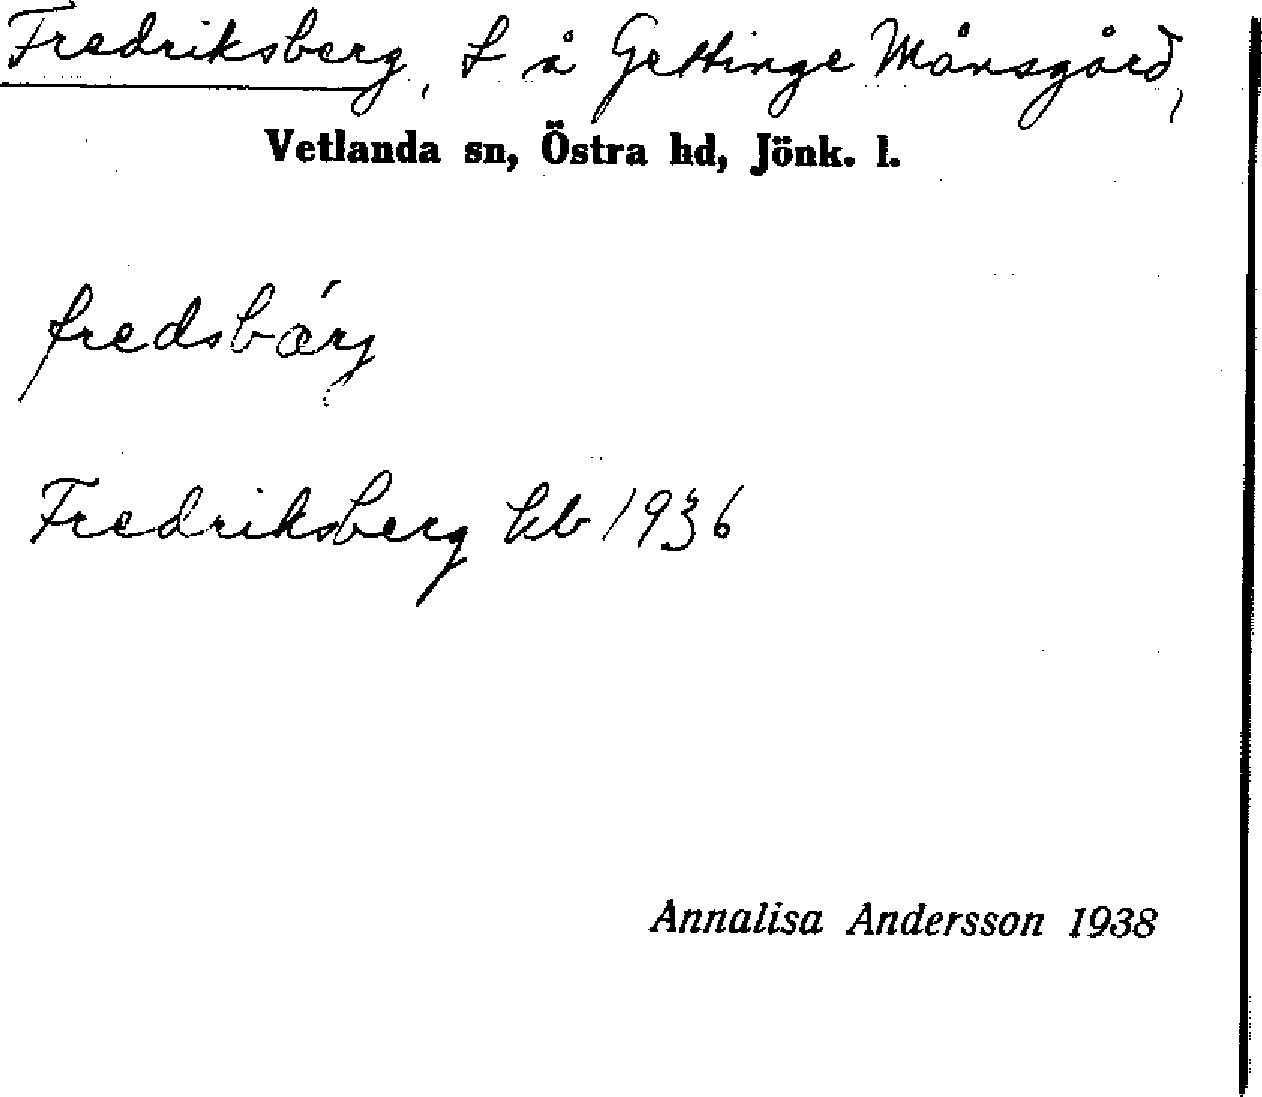 Fredriksberg, t å Gettinge Månsgård,
Vetlanda sn, Östra hd, Jönk. l.
fredsbǽrj
Fredriksberg kb 1936
Annalisa Andersson 1938